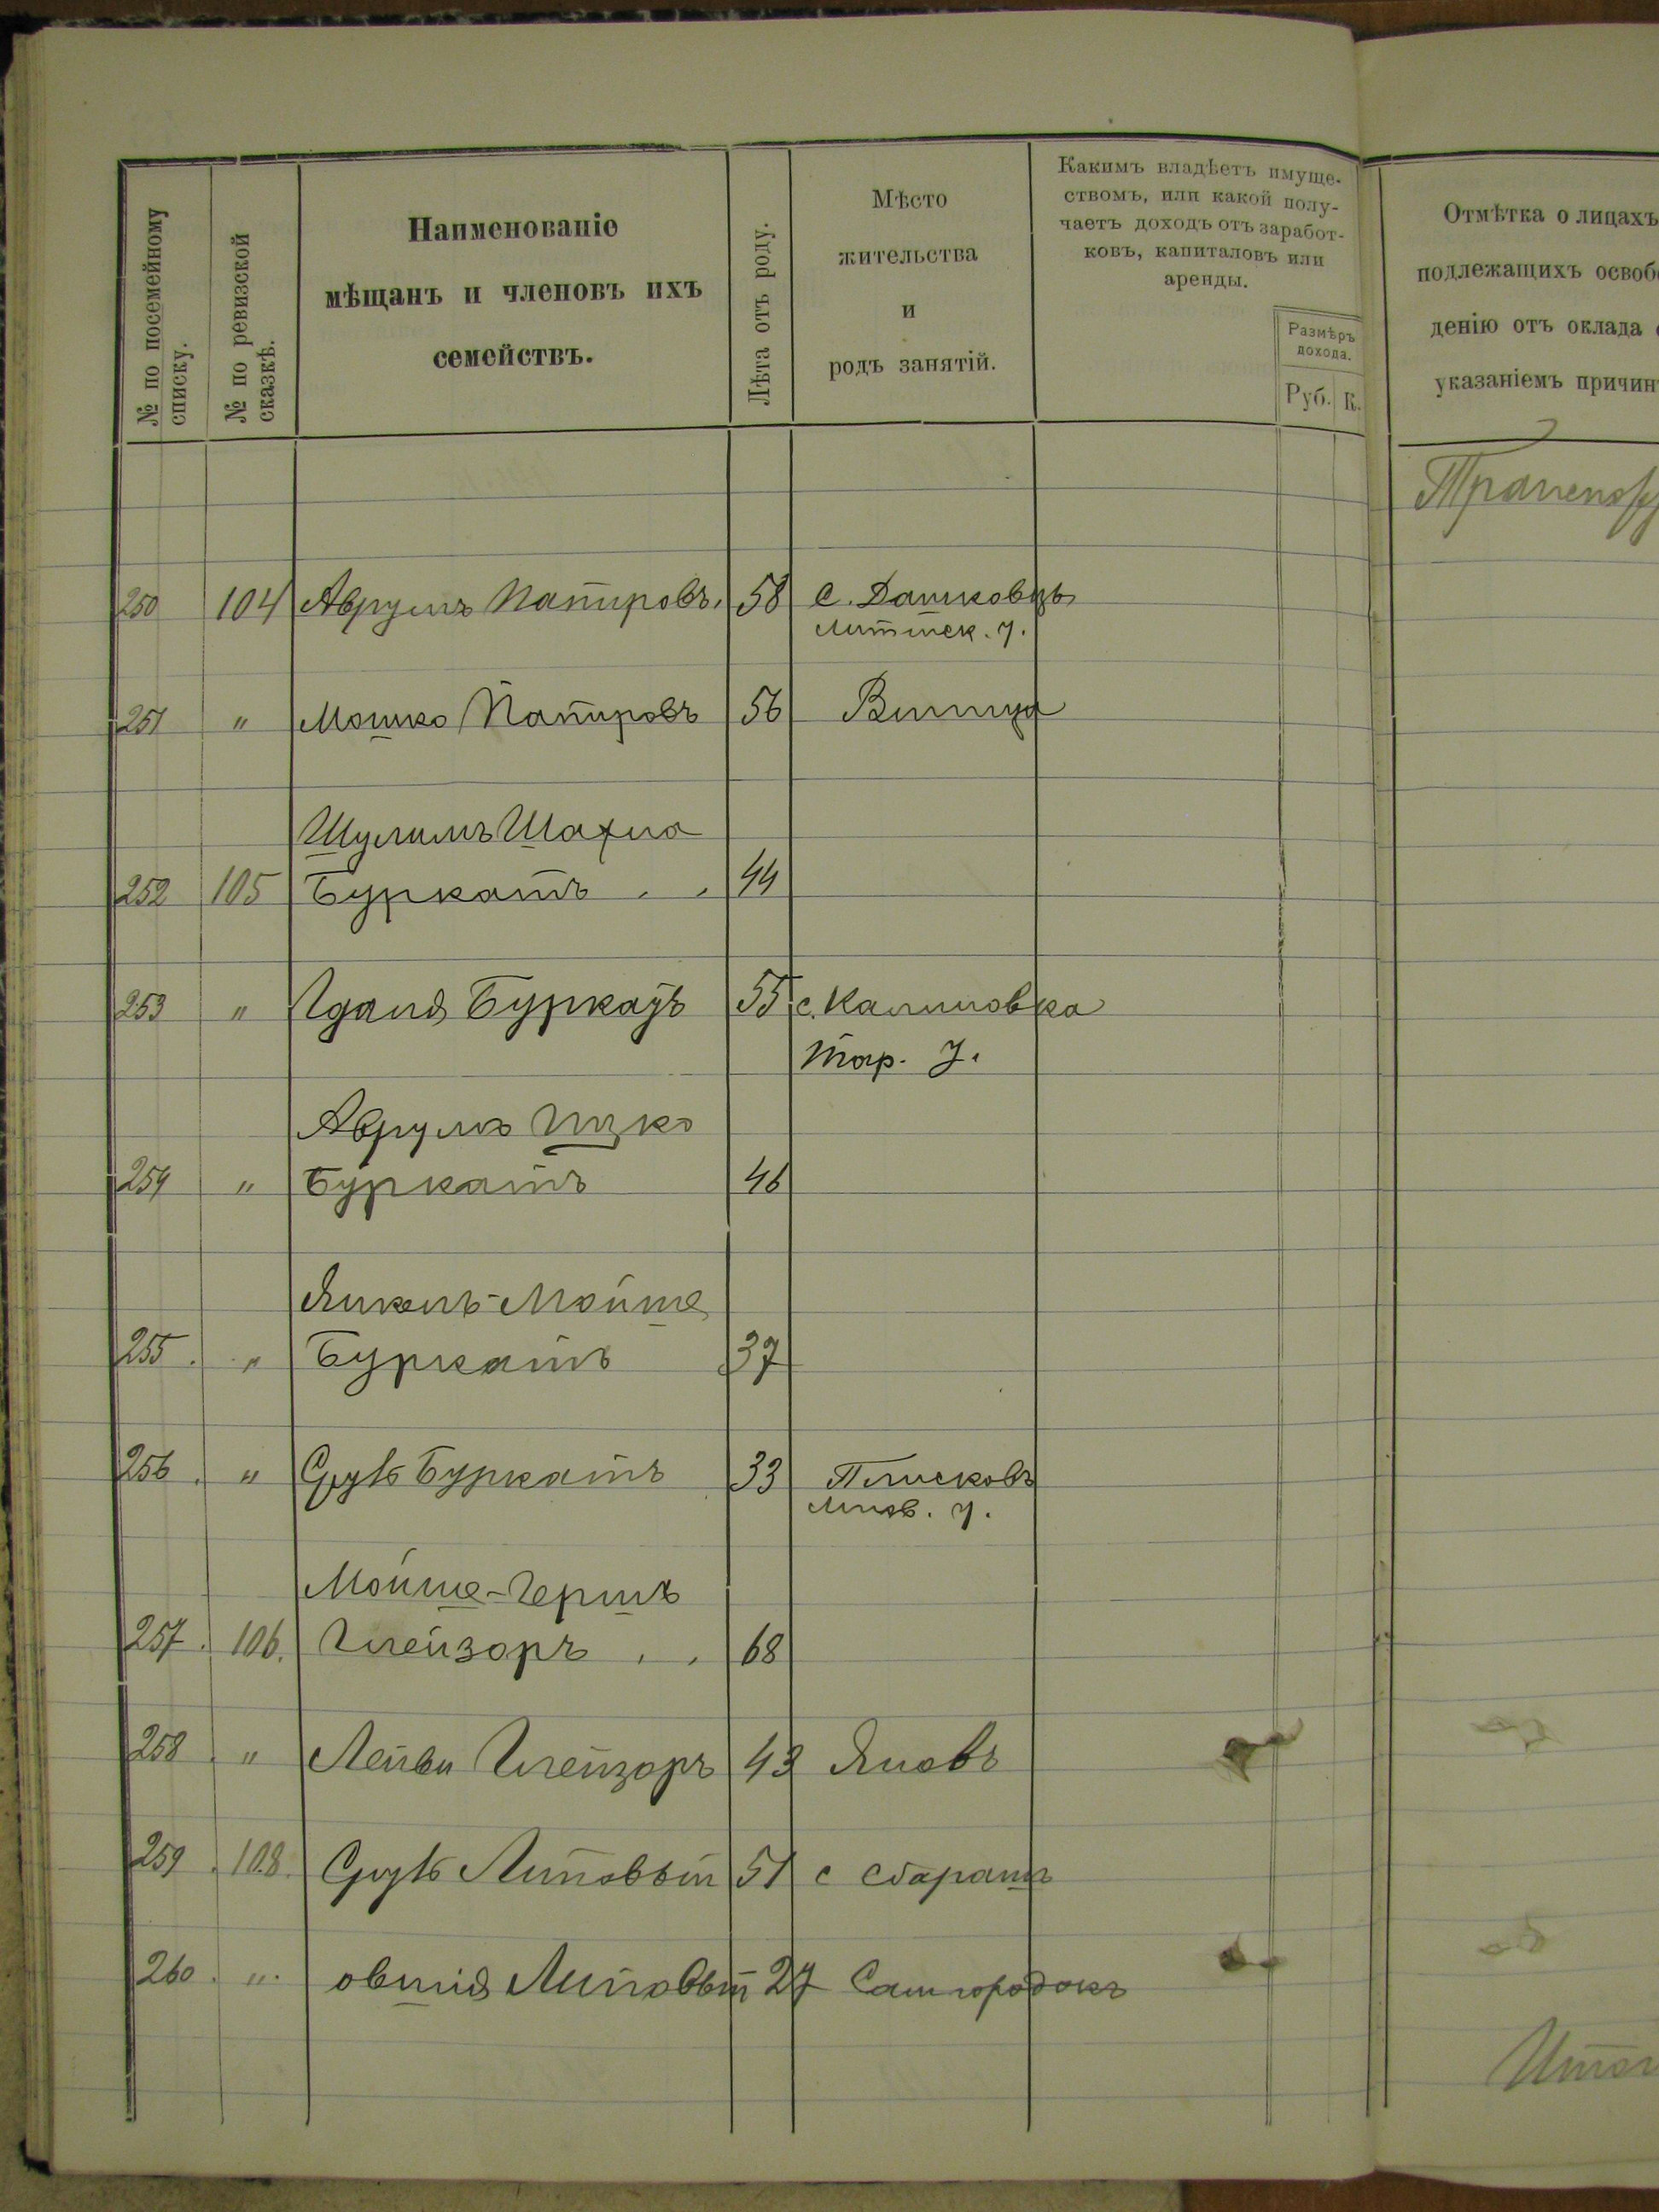 № по посемейному
списку.
№ по ревизской
сказкѣ.
Наименованіе
мѣщанъ и членовъ ихъ
семействъ.
Лѣта отъ роду.
Мѣсто
жительства
и
родъ занятій.
Какимъ владѣетъ имуще-
ствомъ, или какой полу-
чаетъ доходъ отъ заработ-
ковъ, капиталовъ или
аренды.
Размѣръ
дохода.
Руб. К.
Отмѣтка о лицахъ
подлежащихъ освоб
денію отъ оклада
указаніемъ причин
250 104 Аврумъ Папировъ. 58 с. Дашковцъ
Литинск. у.
251 " Мошко Папировъ 56 Винница
Шулимъ Шахна
252 105 Буркатъ . . 44
253 " Буркатъ 55 с. Калиновка
Тар. у.
Аврумъ Ицко
254 " Буркатъ 46
Янкель-Мойше
255 . " Буркатъ 37
256 . " Сруль Буркатъ 33 Плисковъ
Липов. у.
Мойше-Гершъ
257 . 106. Глейзоръ . . 68
258 . " Лейви Глейзоръ 43 Яновъ
259 . 108. Сруль Липовый 51 с
260 . " . овшія Липовый 27 Самгородокъ